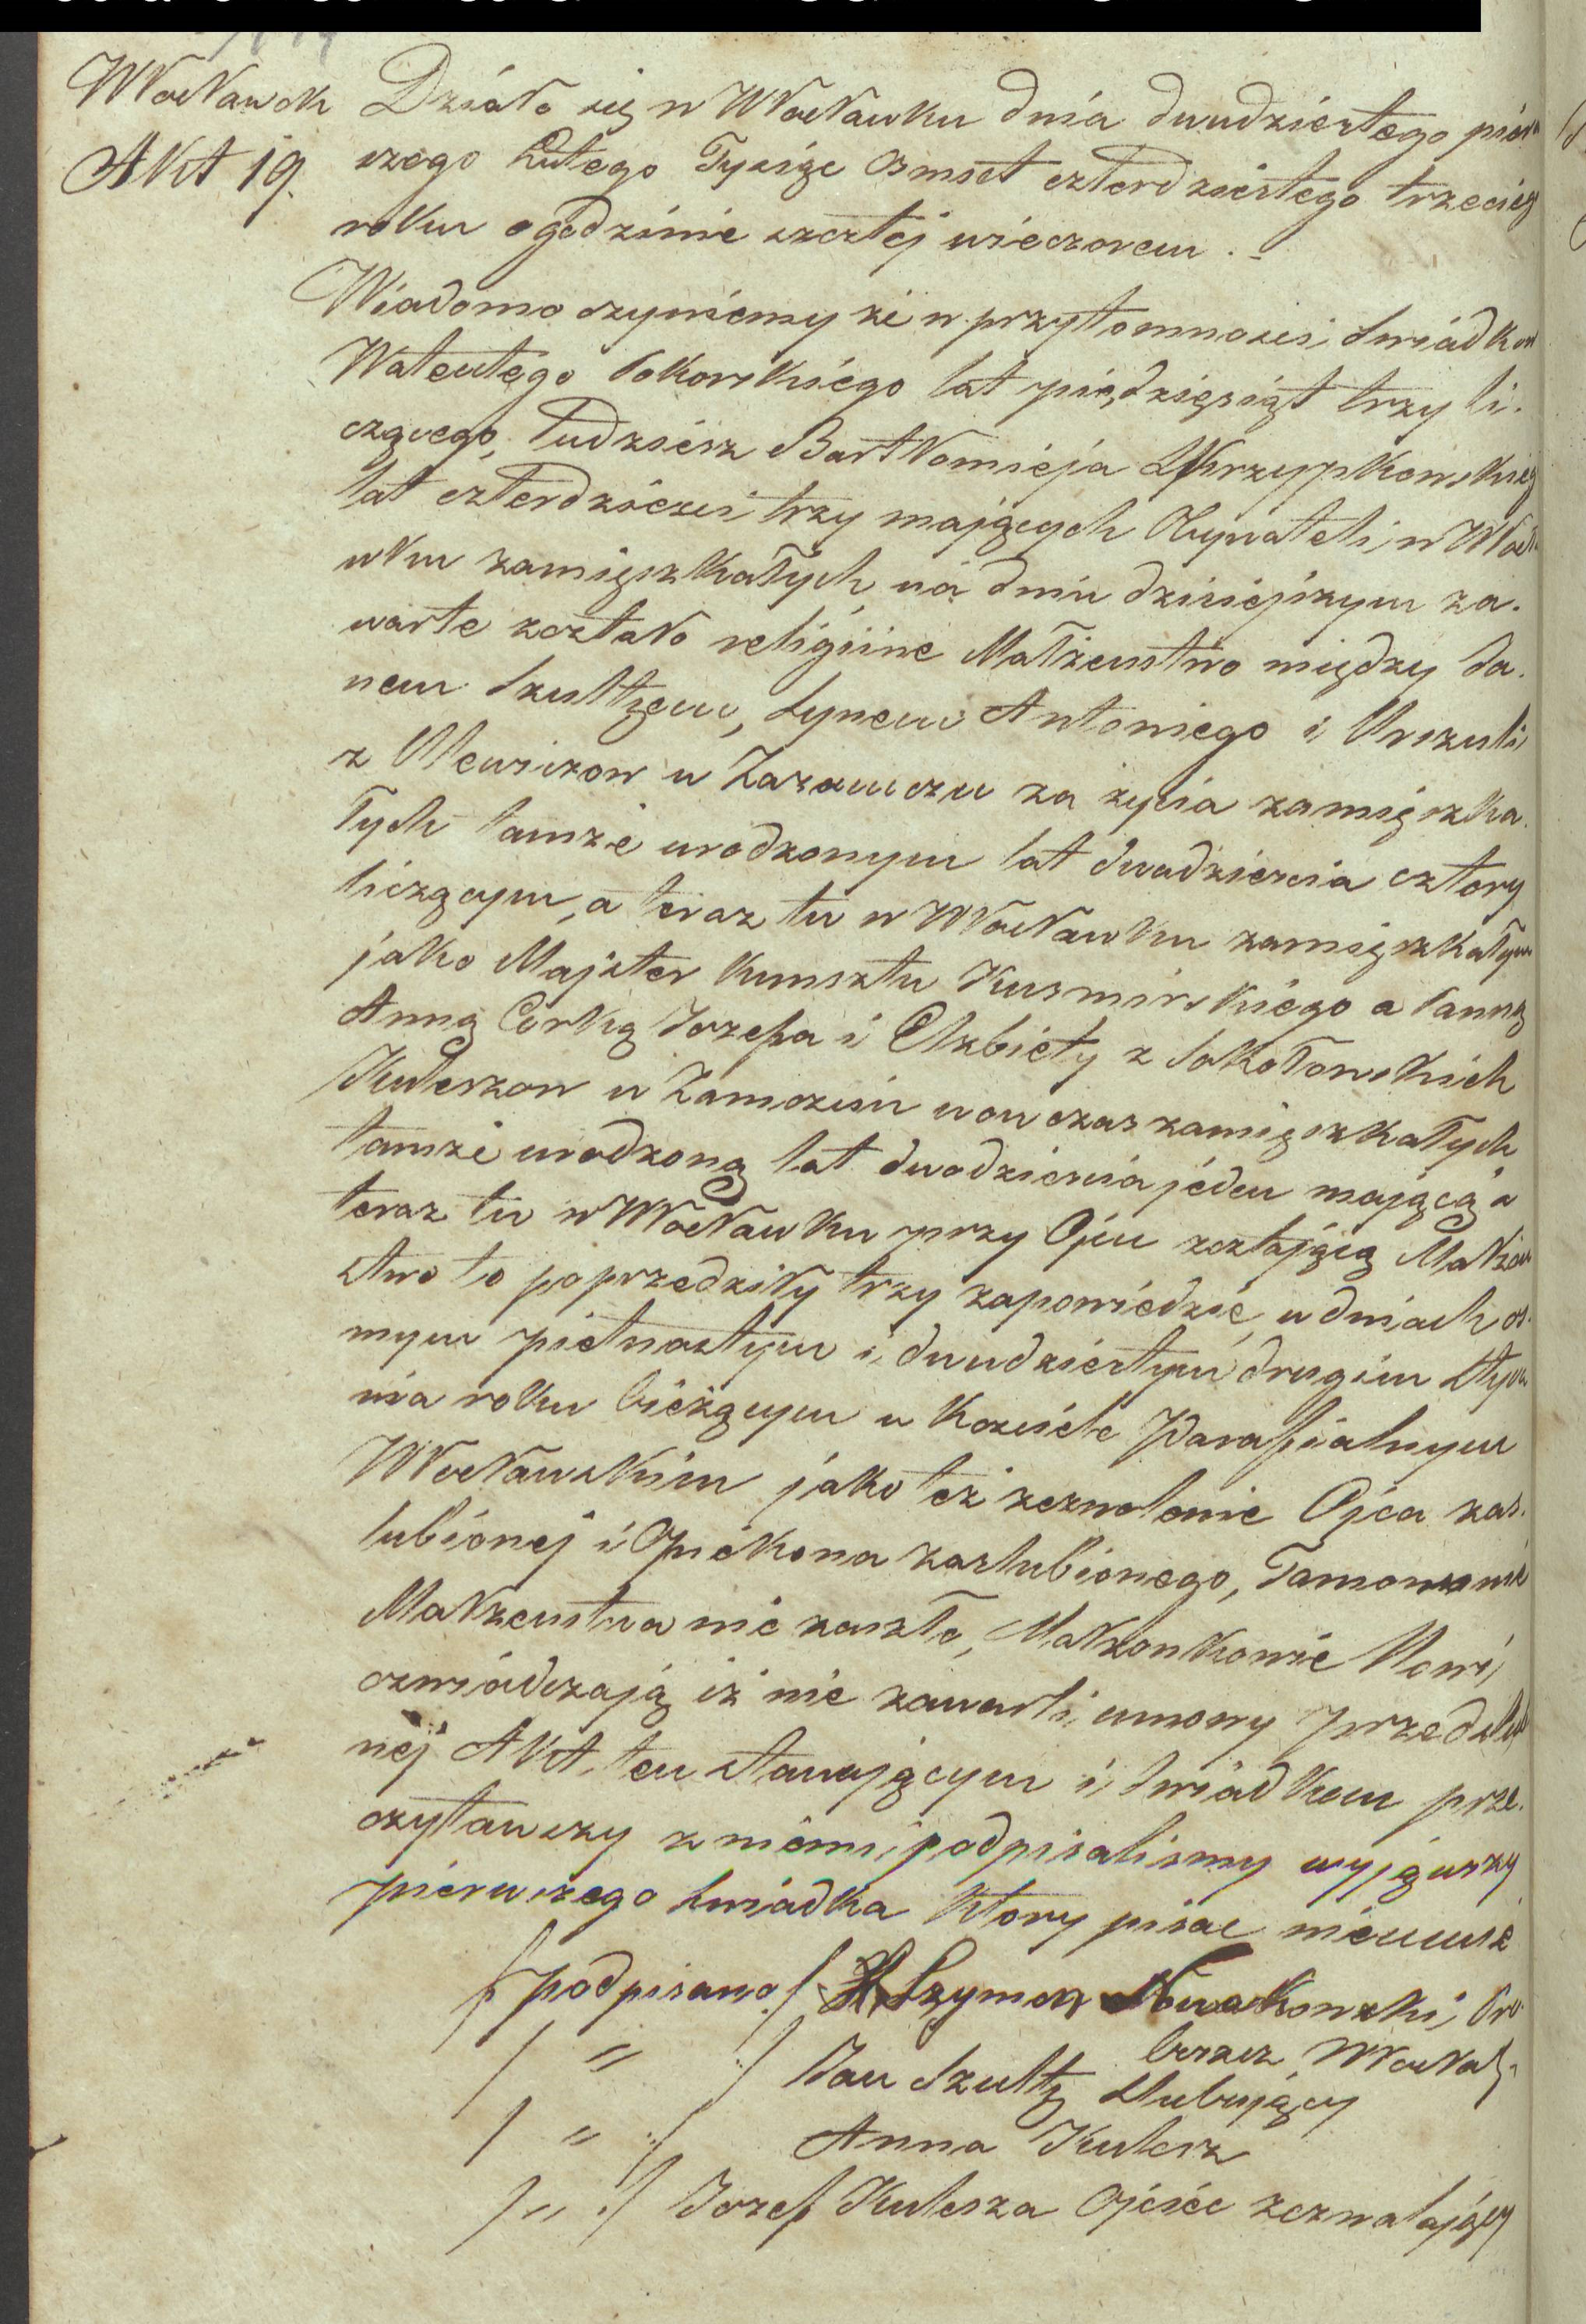 Włocławek
Akt 19.
Działo się w Włocławku dnia dwudziestego pierw
szego Lutego Tysiąc Osmset czterdziestego trzecieg
roku o godzinie szostej wieczorem .-
Wiadomo czyniemy że w przytomnosci Swiadkow
Walentego Sokorskiego lat piędziesiąt trzy li-
czącego, tudziesz Bartłomieja Skrzypkowskieg
lat czterdziesci trzy mających Obywateli w Włocł
wku zamięszkałych na dniu dzisiejszym za-
warte zostało religiine Małżeństwo między Ja-
nem Szultzem, Synem Antoniego i Urszuli
z w za życia zamięszka-
łych tamże urodzonym lat dwadziescia cztery
liczącym, a teraz tu w Włocławku zamięszkałym
jako Majster Kunsztu Kusmirskiego a Panną
Anną Corką Jozefa i Elzbiety z Sokołowskich
Kuleszow w Zamosciu wowczas zamięszkałych
tamże urodzoną lat dwadziescia jeden mającą a
teraz tu w Włocławku przy Ojcu zostającą Małżeń
stwo to poprzedziły trzy zapowiedzie w dniach os-
mym pietnastym i dwudziestym drugim Stycz
nia roku bieżącym w Kosciele Parafialnym
Włocławskim jako też zezwolenie Ojca zas-
lubionej i Opiekona zaslubionego, Tamowanie
Małżenstwa nie zaszło, Małżonkowie Nowi
oswiadczają iż nie zawarli umowy przedslub
nej Akt ten stawającym i Swiadkom prze-
czytawszy z niemi podpisalismy wyjąwszy
pierwszego Swiadka ktory pisac nieumie
/ podpisano / X. Szymon Nowakowski, Pro-
boszcz Włocła
/ " / Jan Szultz Slubujący
/ " / Anna Kulesz
/ " / Jozef Kulesza Ojciec zezwalający